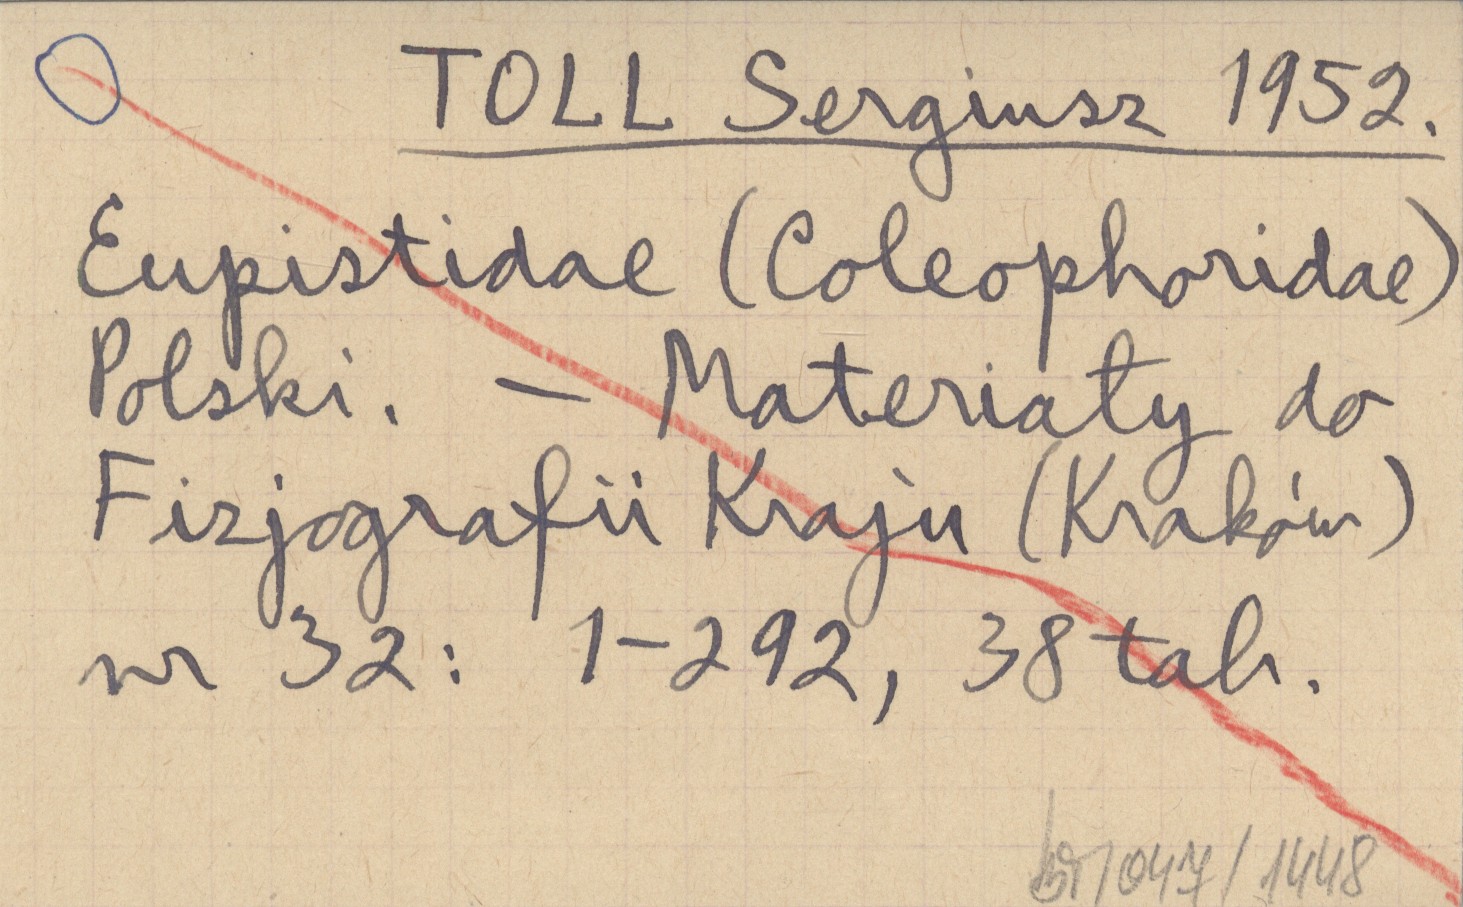 TOLL Sergiusz 1952.
Eupistidae (Coleophoridae)
Polski. – Materiały do
Fizjografii Kraju (Kraków)
nr 32: 1-292, 38 tab.
/047/1448